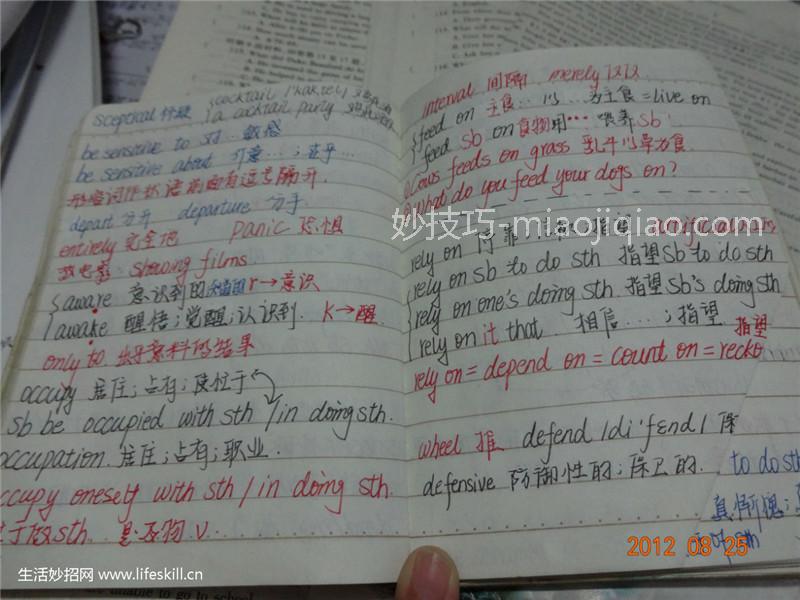 sceptical 怀疑 { cocktail /'kɔktel/
a cocktail party
be sensitive to 对… 敏感
be sensitive about 介意…；在乎…
形容词作状语前面有逗号隔开.
depart 分开 departure 分手
entirely 完全地 panic 恐惧
放电影 showing films
{ aware 意识到的 r→意识
awake 醒悟；觉醒；认识到. k→醒.
only to 出乎意料的结果
occupy 居住；占有；使忙于
sb be occupied with sth / in doing sth.
occupation. 居住；占有；职业.
occupy oneself with sth / in doing sth.
忙于做sth. 是及物 v
interval 间隔 merely 仅仅
{ feed on 主食… 以…为主食 = live on
feed sb on 食物 用… 喂养 sb
① Cows feeds on grass 乳牛以草为食.
② What do you feed your dogs on?
rely on 依靠；指望
rely on sb to do sth 指望sb to do sth
rely on one's doing sth. 指望sb's doing sth
rely on it that 相信…；指望
指望
rely on = depend on = count on = recko
wheel 推 defend /di'fend/ 保
defensive 防御性的；保卫的.
to do sth
真惭愧；
妙技巧-miaojiqiao.com
生活妙招网 www.lifeskill.cn
2012 08 25